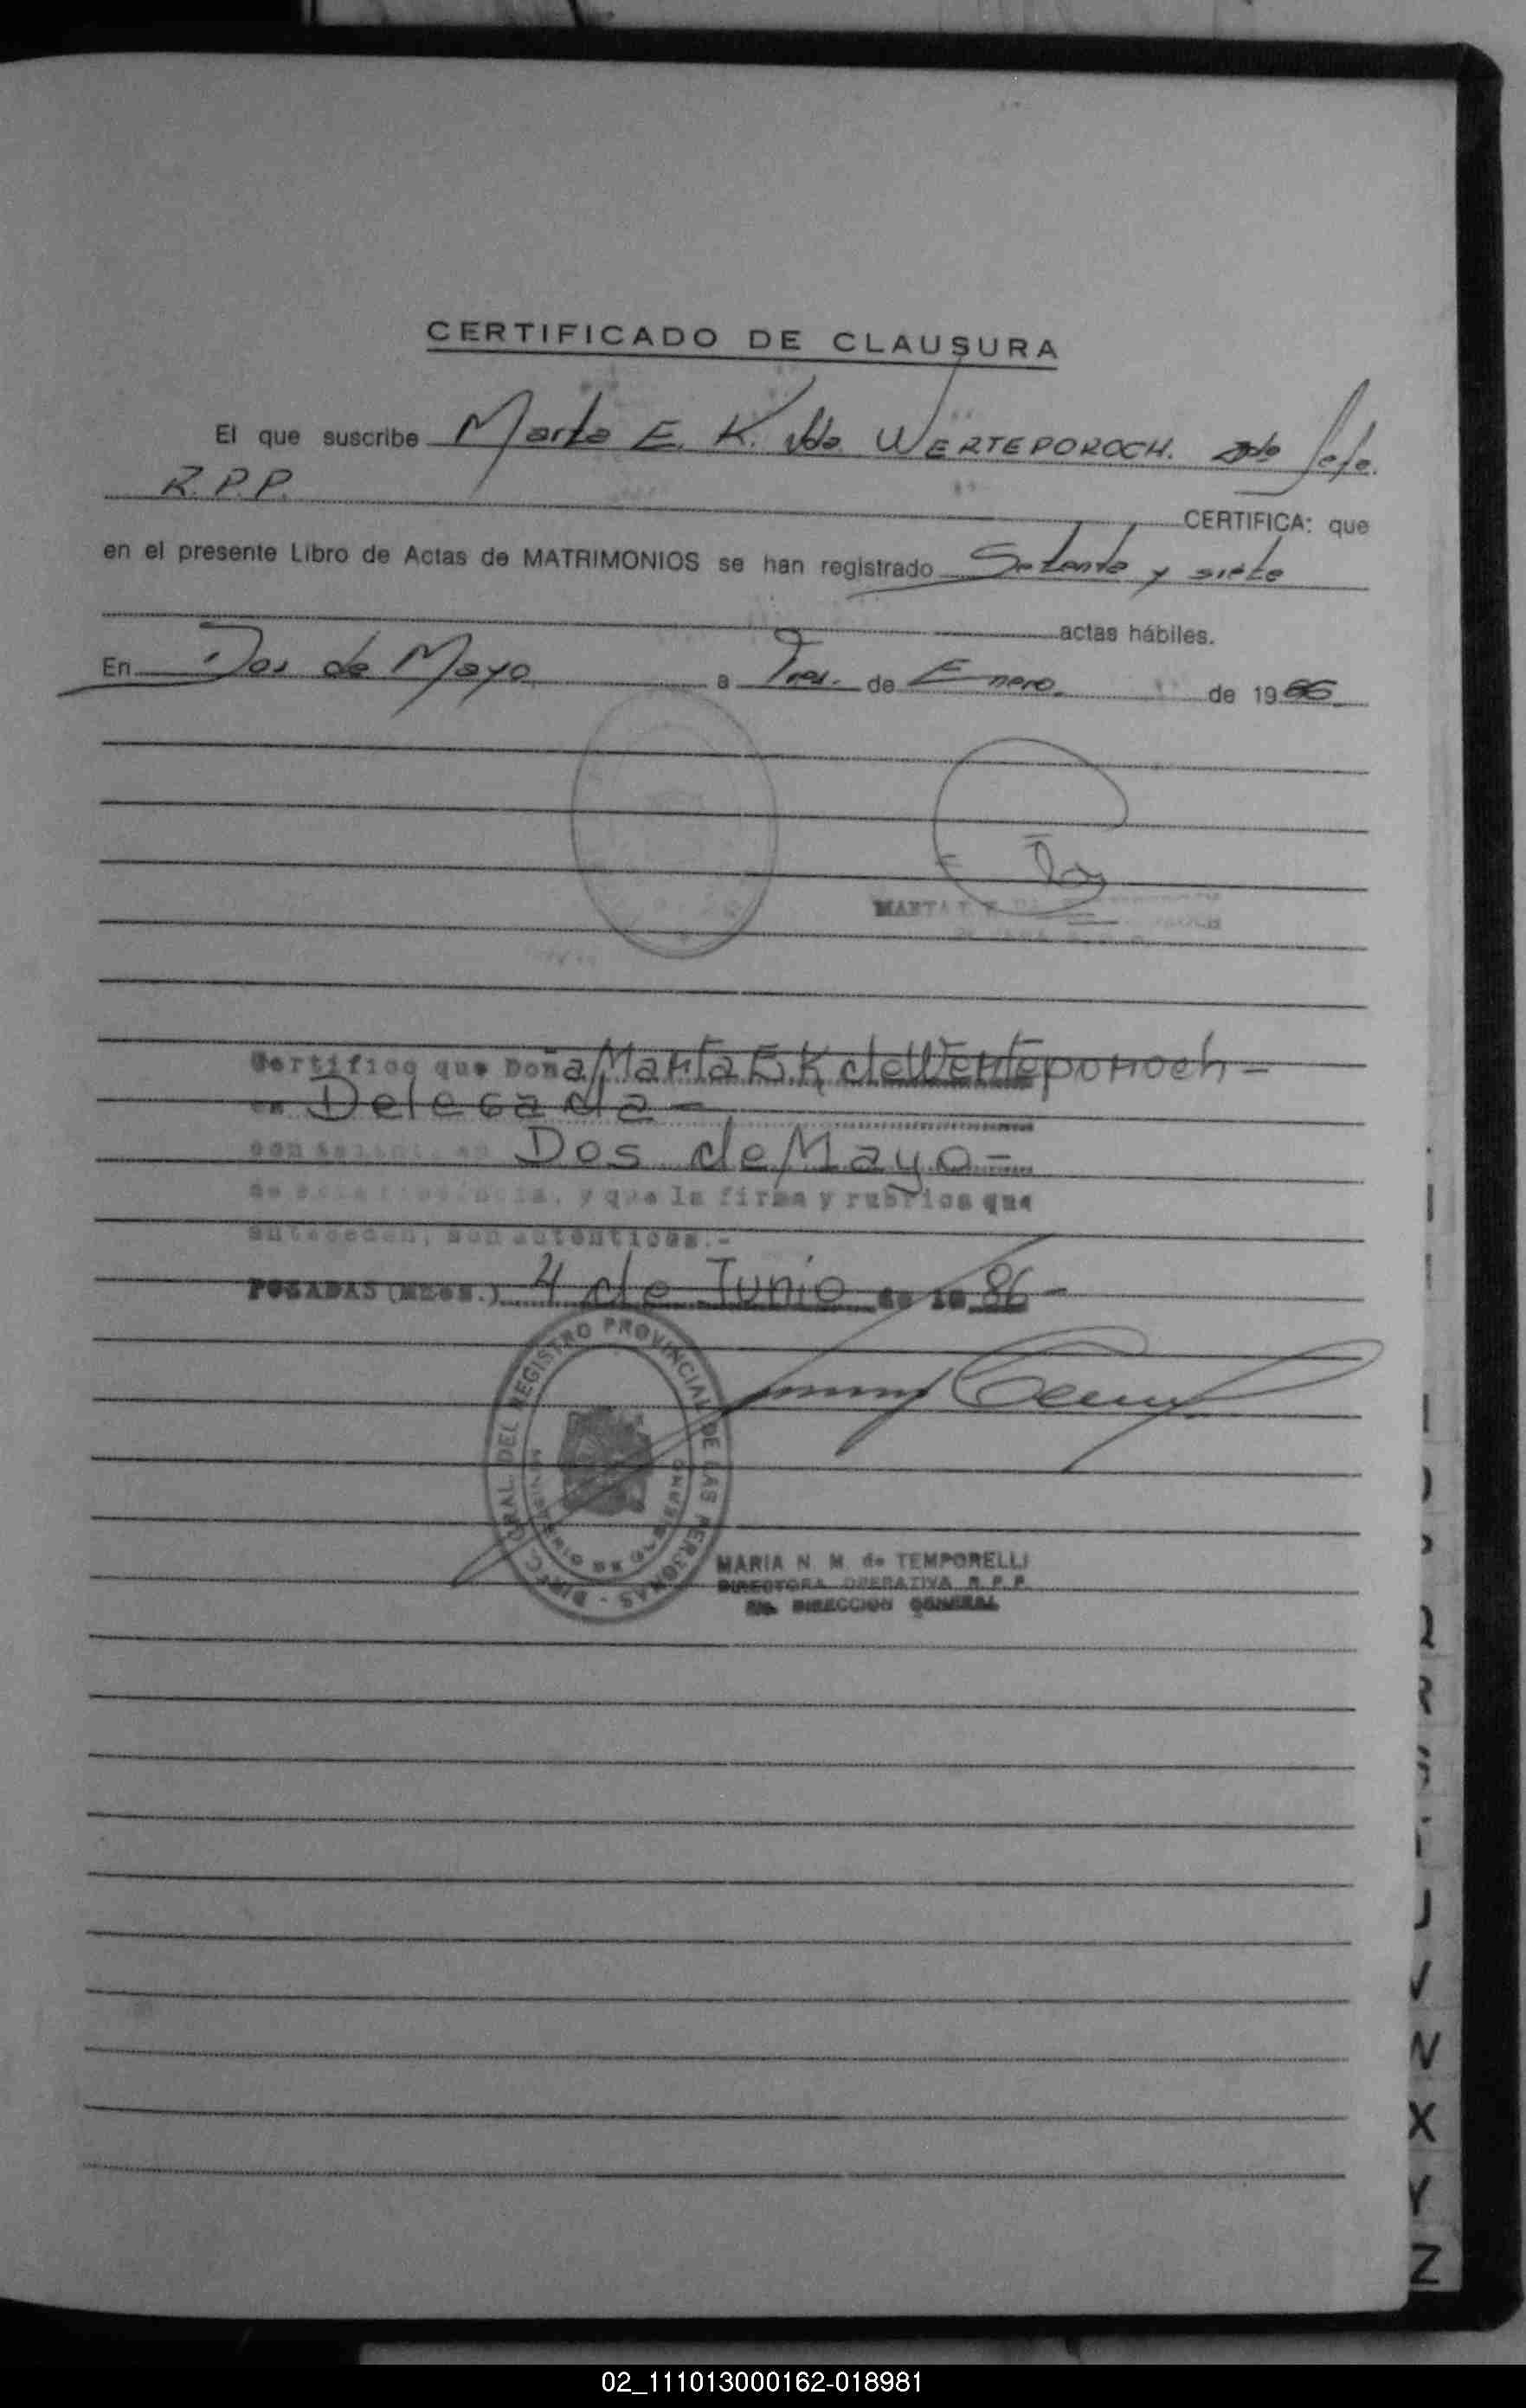 CERTIFICADO DE CLAUSURA
El que suscribe Marta E. K. Vda. WERTEPOROCH. Jefe.
R.P.P. CERTIFICA: que
en el presente Libro de Actas de MATRIMONIOS se han registrado Setenta y siete
actas hábiles.
En Dos de Mayo a Tres. de Enero. de 1986
MARTA E. K.
Certifico que Doña Marta E K de Werteporoch =
es Delegada -
con asiento en Dos de Mayo =
de esta Provincia, y que la firma y rubrica que
anteceden, son autenticas.-
POSADAS (Mnes.) 4 de Junio de 19 86 -
DIREC. GRAL. DEL REGISTRO PROVINCIAL DE LAS PERSONAS
MINISTERIO DE GOBIERNO
MARIA N. M. de TEMPORELLI
DIRECTORA OPERATIVA R. P. P.
DIRECCION GENERAL
J
V
X
Y
Z
02_111013000162-018981